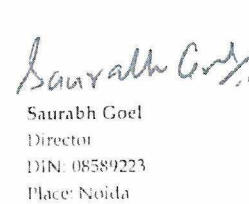 Saurabh Goel
Saurabh Goel
Director
DIN: 08589223
Place: Noida